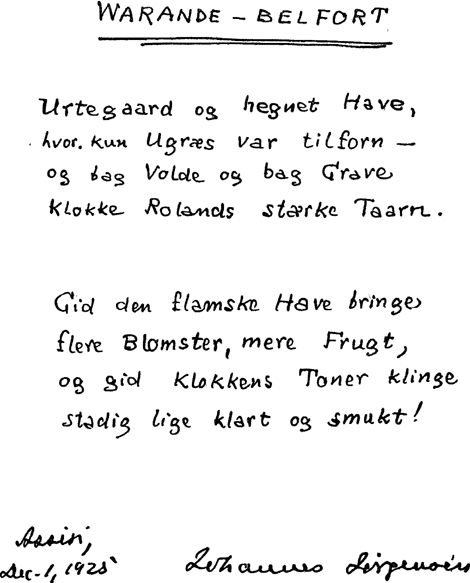 WARANDE – BELFORT
Urtegaard og hegnet Have,
hvor kun Ugræs var tilforn –
og bag Volde og bag Grave
Klokke Rolands stærke Taarn.
Gid den flamske Have bringe
flere Blomster, mere Frugt,
og gid Klokkens Toner klinge
stadig lige klart og smukt!
Assisi,
Dec. 1, 1925
Johannes Jørgensen